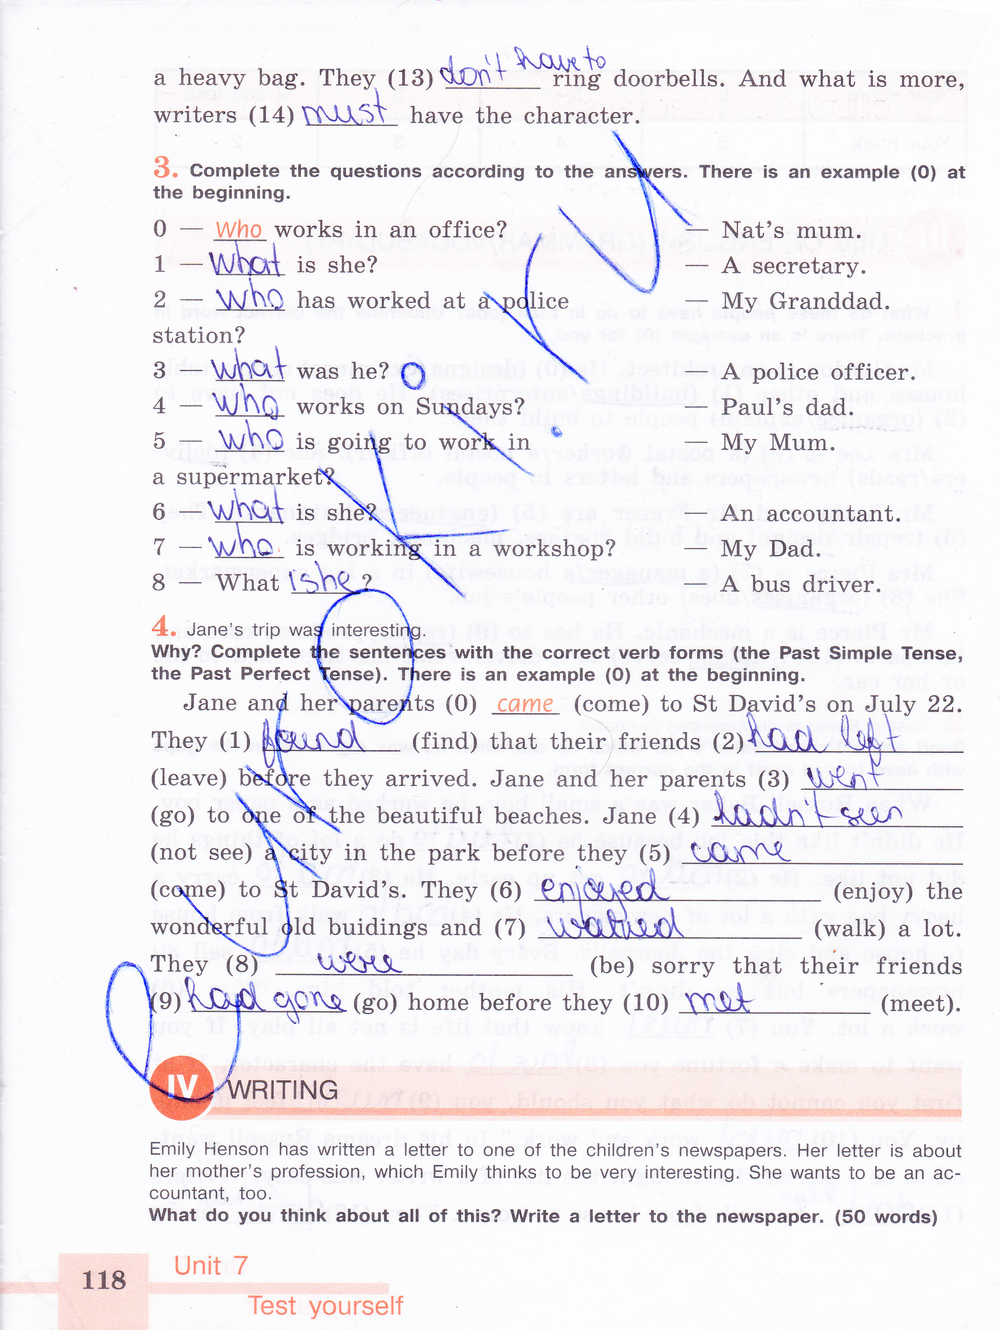 a heavy bag. They (13) don't have to ring doorbells. And what is more,
writers (14) must have the character.
3. Complete the questions according to the answers. There is an example (0) at
the beginning.
0 — Who works in an office? — Nat's mum.
1 — What is she? — A secretary.
2 — Who has worked at a police — My Granddad.
station?
3 — what was he? — A police officer.
4 — who works on Sundays? — Paul's dad.
5 — who is going to work in — My Mum.
a supermarket?
6 — what is she? — An accountant.
7 — who is working in a workshop? — My Dad.
8 — What is he? — A bus driver.
4. Jane's trip was interesting.
Why? Complete the sentences with the correct verb forms (the Past Simple Tense,
the Past Perfect Tense). There is an example (0) at the beginning.
Jane and her parents (0) came (come) to St David's on July 22.
They (1) found (find) that their friends (2) had left
(leave) before they arrived. Jane and her parents (3) went
(go) to one of the beautiful beaches. Jane (4) hadn't seen
(not see) a city in the park before they (5) came
(come) to St David's. They (6) enjoyed (enjoy) the
wonderful old buidings and (7) walked (walk) a lot.
They (8) were (be) sorry that their friends
(9) had gone (go) home before they (10) met (meet).
IV WRITING
Emily Henson has written a letter to one of the children's newspapers. Her letter is about
her mother's profession, which Emily thinks to be very interesting. She wants to be an ac-
countant, too.
What do you think about all of this? Write a letter to the newspaper. (50 words)
118 Unit 7
Test yourself